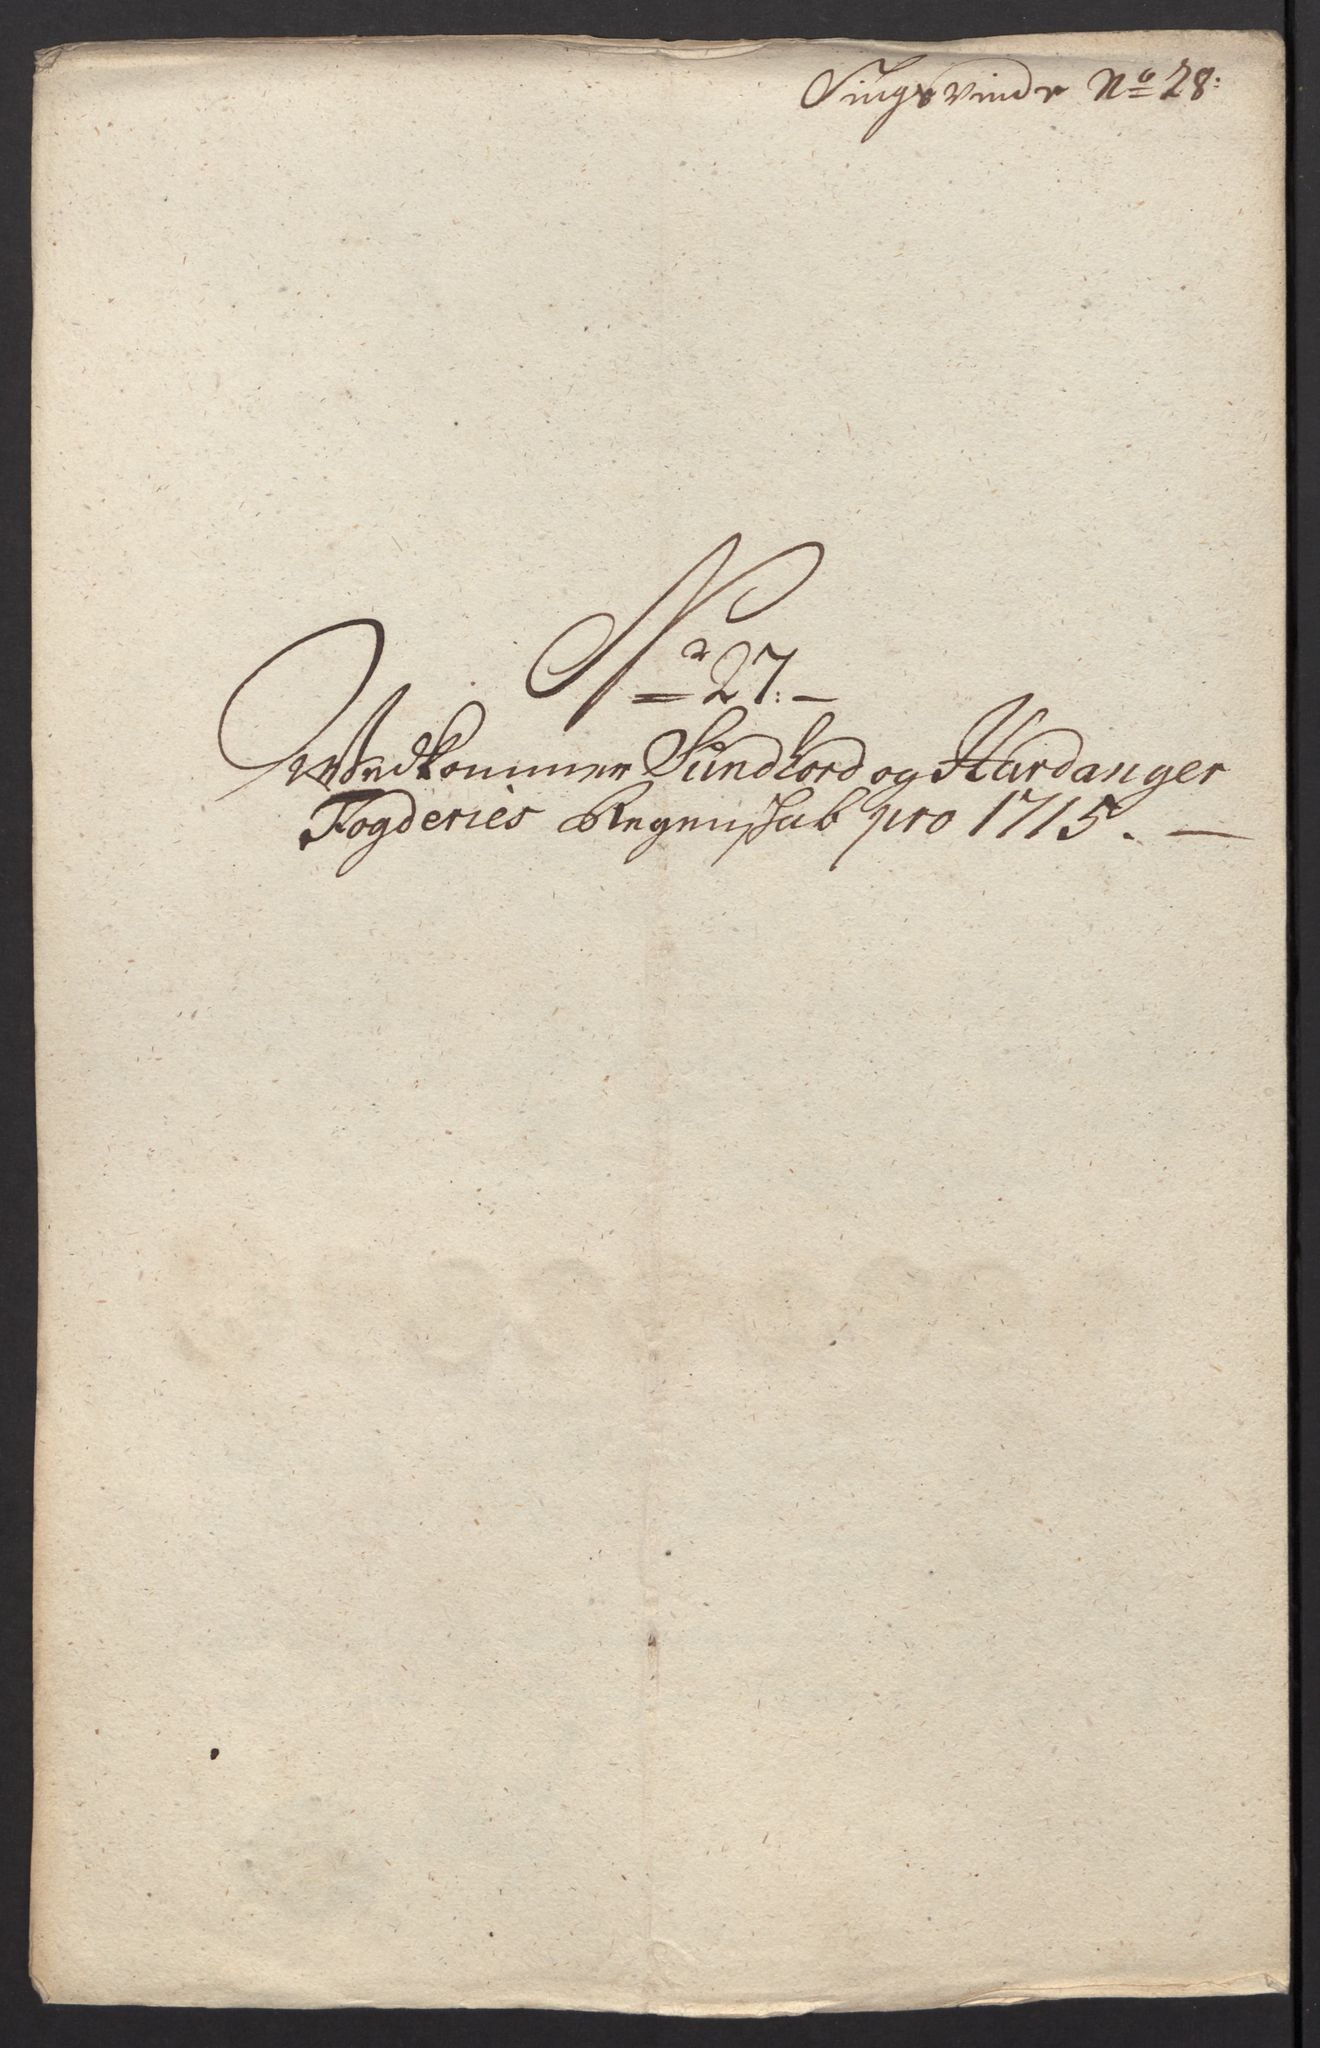 Tingsvinde No 28:
No 27. —
Wedkommer Sundhord og Hardanger
Fogderies Regenskab pro 1715. —